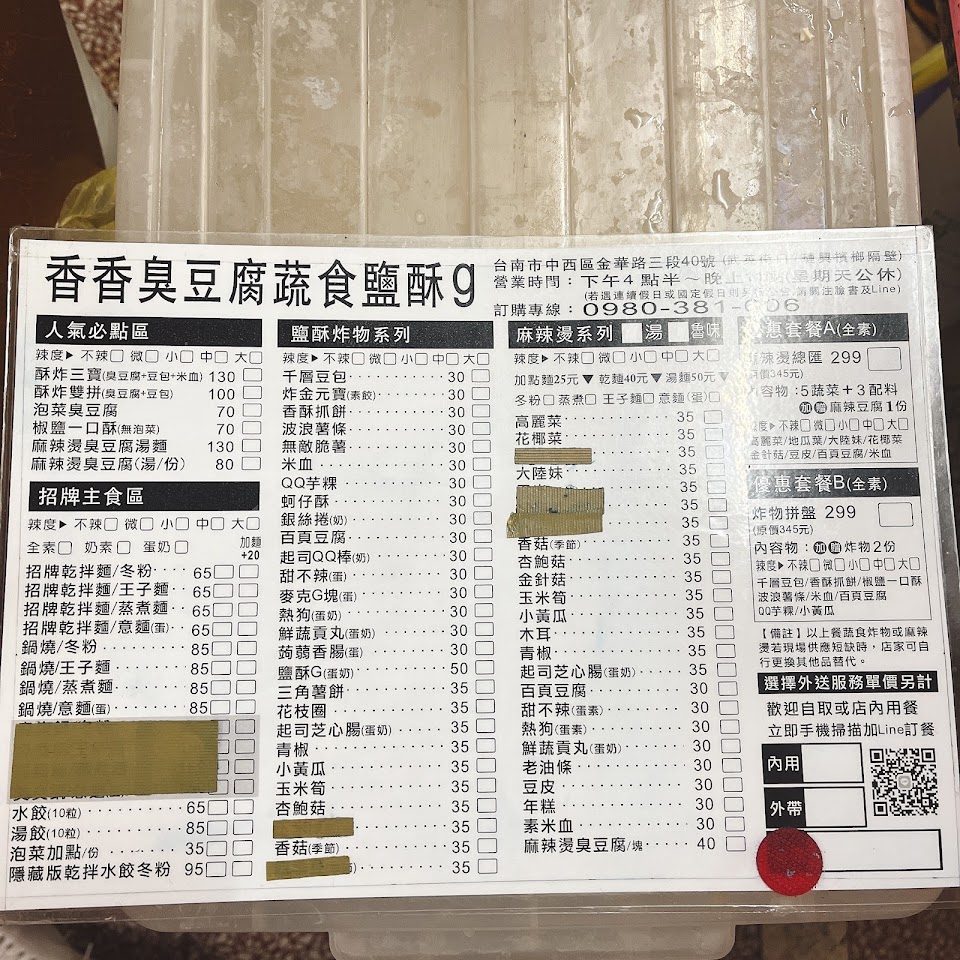 香香臭豆腐蔬食鹽酥g
台南市中西區金華路三段40號
營業時間：下午4點半～晚上
星期天公休)
(若遇連續假日或國定假日則
請關注臉書及Line)
訂購專線：0980-381-006
人氣必點區
辣度▶ 不辣□ 微□ 小□ 中□ 大□
酥炸三寶(臭豆腐+豆包+米血) 130 □
酥炸雙拼(臭豆腐+豆包) 100 □
泡菜臭豆腐 70 □
椒鹽一口酥(無泡菜) 70 □
麻辣燙臭豆腐湯麵 130 □
麻辣燙臭豆腐(湯/份) 80 □
招牌主食區
辣度▶ 不辣□ 微□ 小□ 中□ 大□
全素□ 奶素□ 蛋奶□ 加麵+20
招牌乾拌麵/冬粉‧‧‧65□□
招牌乾拌麵/王子麵‧‧65□□
招牌乾拌麵/蒸煮麵‧‧65□□
招牌乾拌麵/意麵(蛋)‧65□□
鍋燒/冬粉‧‧‧‧‧‧85□□
鍋燒/王子麵‧‧‧‧‧85□□
鍋燒/蒸煮麵‧‧‧‧‧85□□
鍋燒/意麵(蛋)‧‧‧‧85□□
水餃(10粒)‧‧‧‧‧65□□
湯餃(10粒)‧‧‧‧‧85□□
泡菜加點/份‧‧‧‧‧35□□
隱藏版乾拌水餃冬粉 95□□
鹽酥炸物系列
辣度▶ 不辣□ 微□ 小□ 中□ 大□
千層豆包‧‧‧‧‧‧30 □
炸金元寶(素餃)‧‧‧‧30 □
香酥抓餅‧‧‧‧‧‧30 □
波浪薯條‧‧‧‧‧‧30 □
無敵脆薯‧‧‧‧‧‧30 □
米血‧‧‧‧‧‧‧‧30 □
QQ芋粿‧‧‧‧‧‧‧30 □
蚵仔酥‧‧‧‧‧‧‧30 □
銀絲捲(奶)‧‧‧‧‧‧30 □
百頁豆腐‧‧‧‧‧‧30 □
起司QQ棒(奶)‧‧‧‧30 □
甜不辣(蛋)‧‧‧‧‧‧30 □
麥克G塊(蛋)‧‧‧‧‧30 □
熱狗(蛋奶)‧‧‧‧‧‧30 □
鮮蔬貢丸(蛋奶)‧‧‧‧30 □
蒟蒻香腸(蛋)‧‧‧‧‧30 □
鹽酥G(蛋奶)‧‧‧‧‧50 □
三角薯餅‧‧‧‧‧‧35 □
花枝圈‧‧‧‧‧‧‧35 □
起司芝心腸(蛋奶)‧‧‧35 □
青椒‧‧‧‧‧‧‧‧35 □
小黃瓜‧‧‧‧‧‧‧35 □
玉米筍‧‧‧‧‧‧‧35 □
杏鮑菇‧‧‧‧‧‧‧35 □
35 □
香菇(季節)‧‧‧‧‧‧35 □
35 □
麻辣燙系列 □湯 □魯味
辣度▶ 不辣□ 微□ 小□ 中□ 大□
加點麵25元▼ 乾麵40元▼ 湯麵50元▼
冬粉□ 蒸煮□ 王子麵□ 意麵(蛋)□
高麗菜‧‧‧‧‧‧‧35 □
花椰菜‧‧‧‧‧‧‧35 □
35 □
大陸妹‧‧‧‧‧‧‧35 □
35 □
35 □
香菇(季節)‧‧‧‧‧‧35 □
杏鮑菇‧‧‧‧‧‧‧35 □
金針菇‧‧‧‧‧‧‧35 □
玉米筍‧‧‧‧‧‧‧35 □
小黃瓜‧‧‧‧‧‧‧35 □
木耳‧‧‧‧‧‧‧‧35 □
青椒‧‧‧‧‧‧‧‧35 □
起司芝心腸(蛋奶)‧‧‧35 □
百頁豆腐‧‧‧‧‧‧30 □
甜不辣(蛋素)‧‧‧‧‧30 □
熱狗(蛋素)‧‧‧‧‧‧30 □
鮮蔬貢丸(蛋奶)‧‧‧‧30 □
老油條‧‧‧‧‧‧‧30 □
豆皮‧‧‧‧‧‧‧‧30 □
年糕‧‧‧‧‧‧‧‧30 □
素米血‧‧‧‧‧‧‧30 □
麻辣燙臭豆腐/塊‧‧‧40 □
惠套餐A(全素)
辣燙總匯 299
原價345元)
內容物：5蔬菜＋3配料
加贈 麻辣豆腐1份
辣度▶ 不辣□ 微□ 小□ 中□ 大□
高麗菜/地瓜葉/大陸妹/花椰菜
金針菇/豆皮/百頁豆腐/米血
優惠套餐B(全素)
炸物拼盤 299
(原價345元)
內容物：加贈 炸物2份
辣度▶ 不辣□ 微□ 小□ 中□ 大□
千層豆包/香酥抓餅/椒鹽一口酥
波浪薯條/米血/百頁豆腐
QQ芋粿/小黃瓜
【備註】以上餐蔬食炸物或麻辣
燙若現場供應短缺時，店家可自
行更換其他品替代。
選擇外送服務單價另計
歡迎自取或店內用餐
立即手機掃描加Line訂餐
內用
外帶